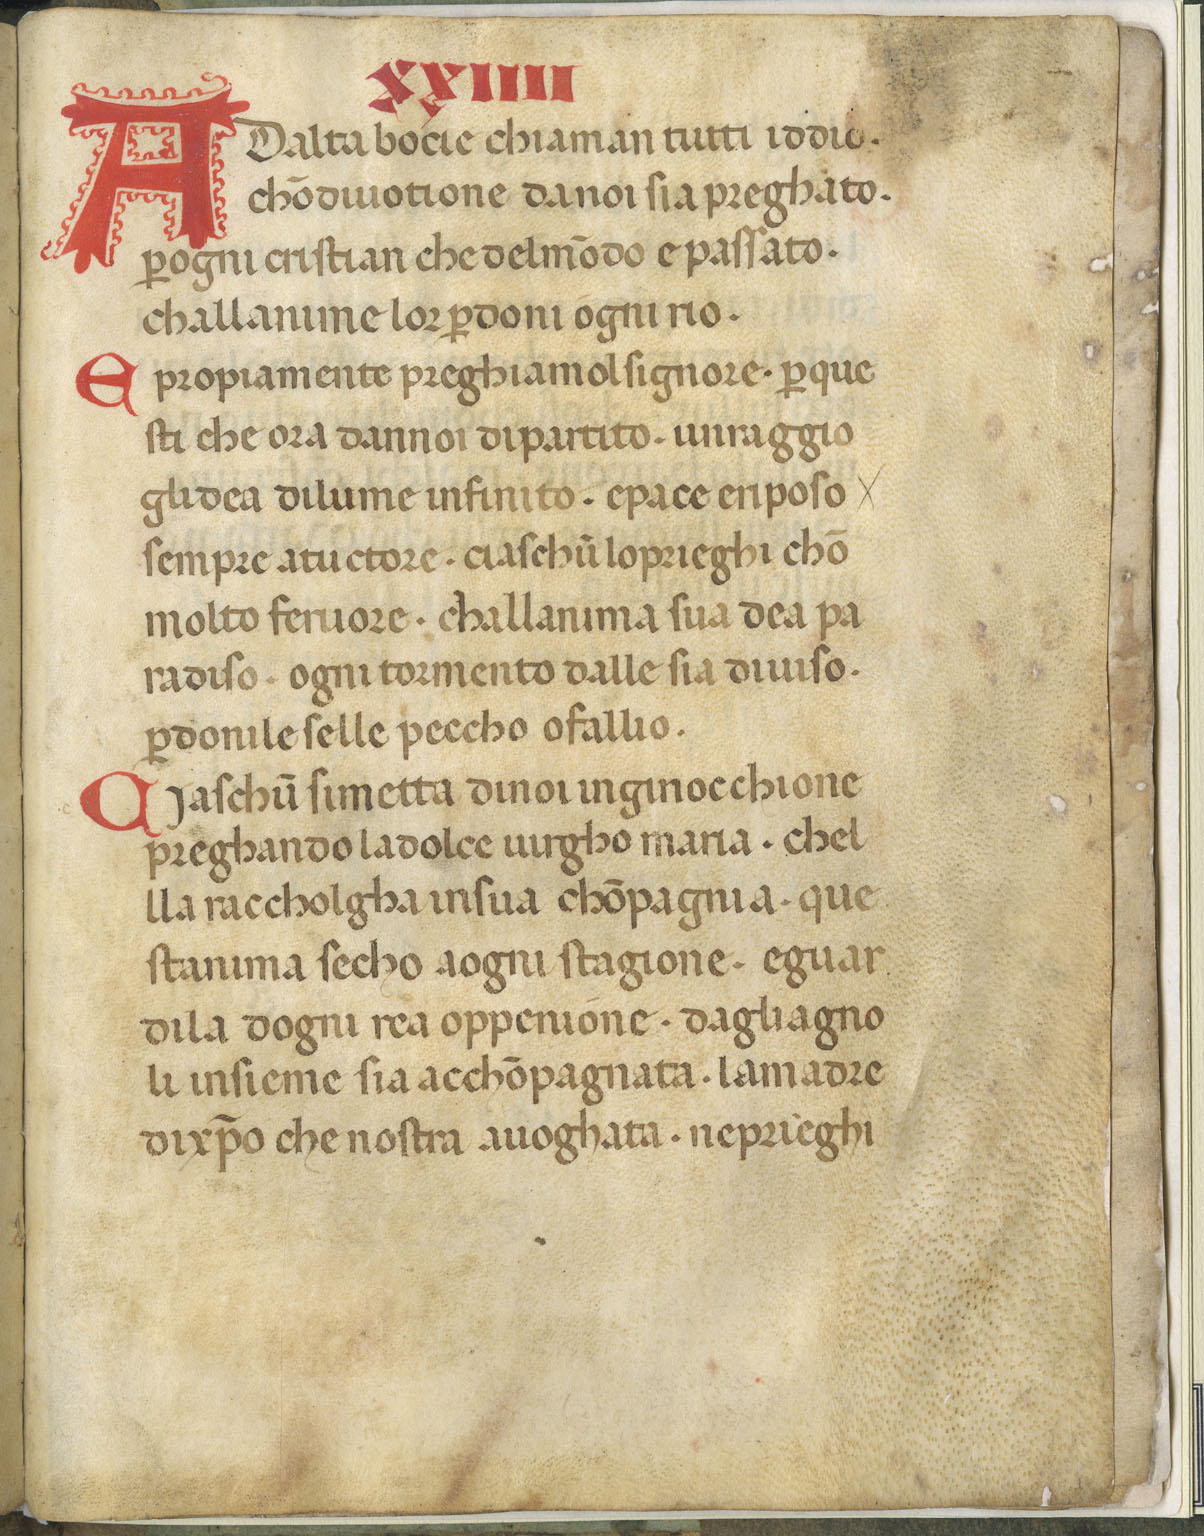 XXIIIII
ADalta bocie chiaman tutti iddio.
chōdiuotione da noi sia preghato.
ꝑogni cristian che delmōdo e passato.
challanime lor ꝑdoni ogni rio.
E propiamente preghiamol signore. ꝑque
sti che ora dannoi dipartito. unraggio
glidea dilume infinito. epace eriposo
sempre atuctore. ciaschū loprieghi chō
molto feruore. challanima sua dea pa
radiso. ogni tormento dalle sia diuiso.
ꝑdonile selle peccho ofallio.
Ciaschū simetta dinoi inginocchione
preghando ladolce uirgho maria. chel
lla raccholgha insua chōpagnia. que
stanima secho aogni stagione. eguar
dila dogni rea oppenione. dagliagno
li insieme sia acchōpagnata. lamadre
dixp̄o che nostra auoghata. neprieghi